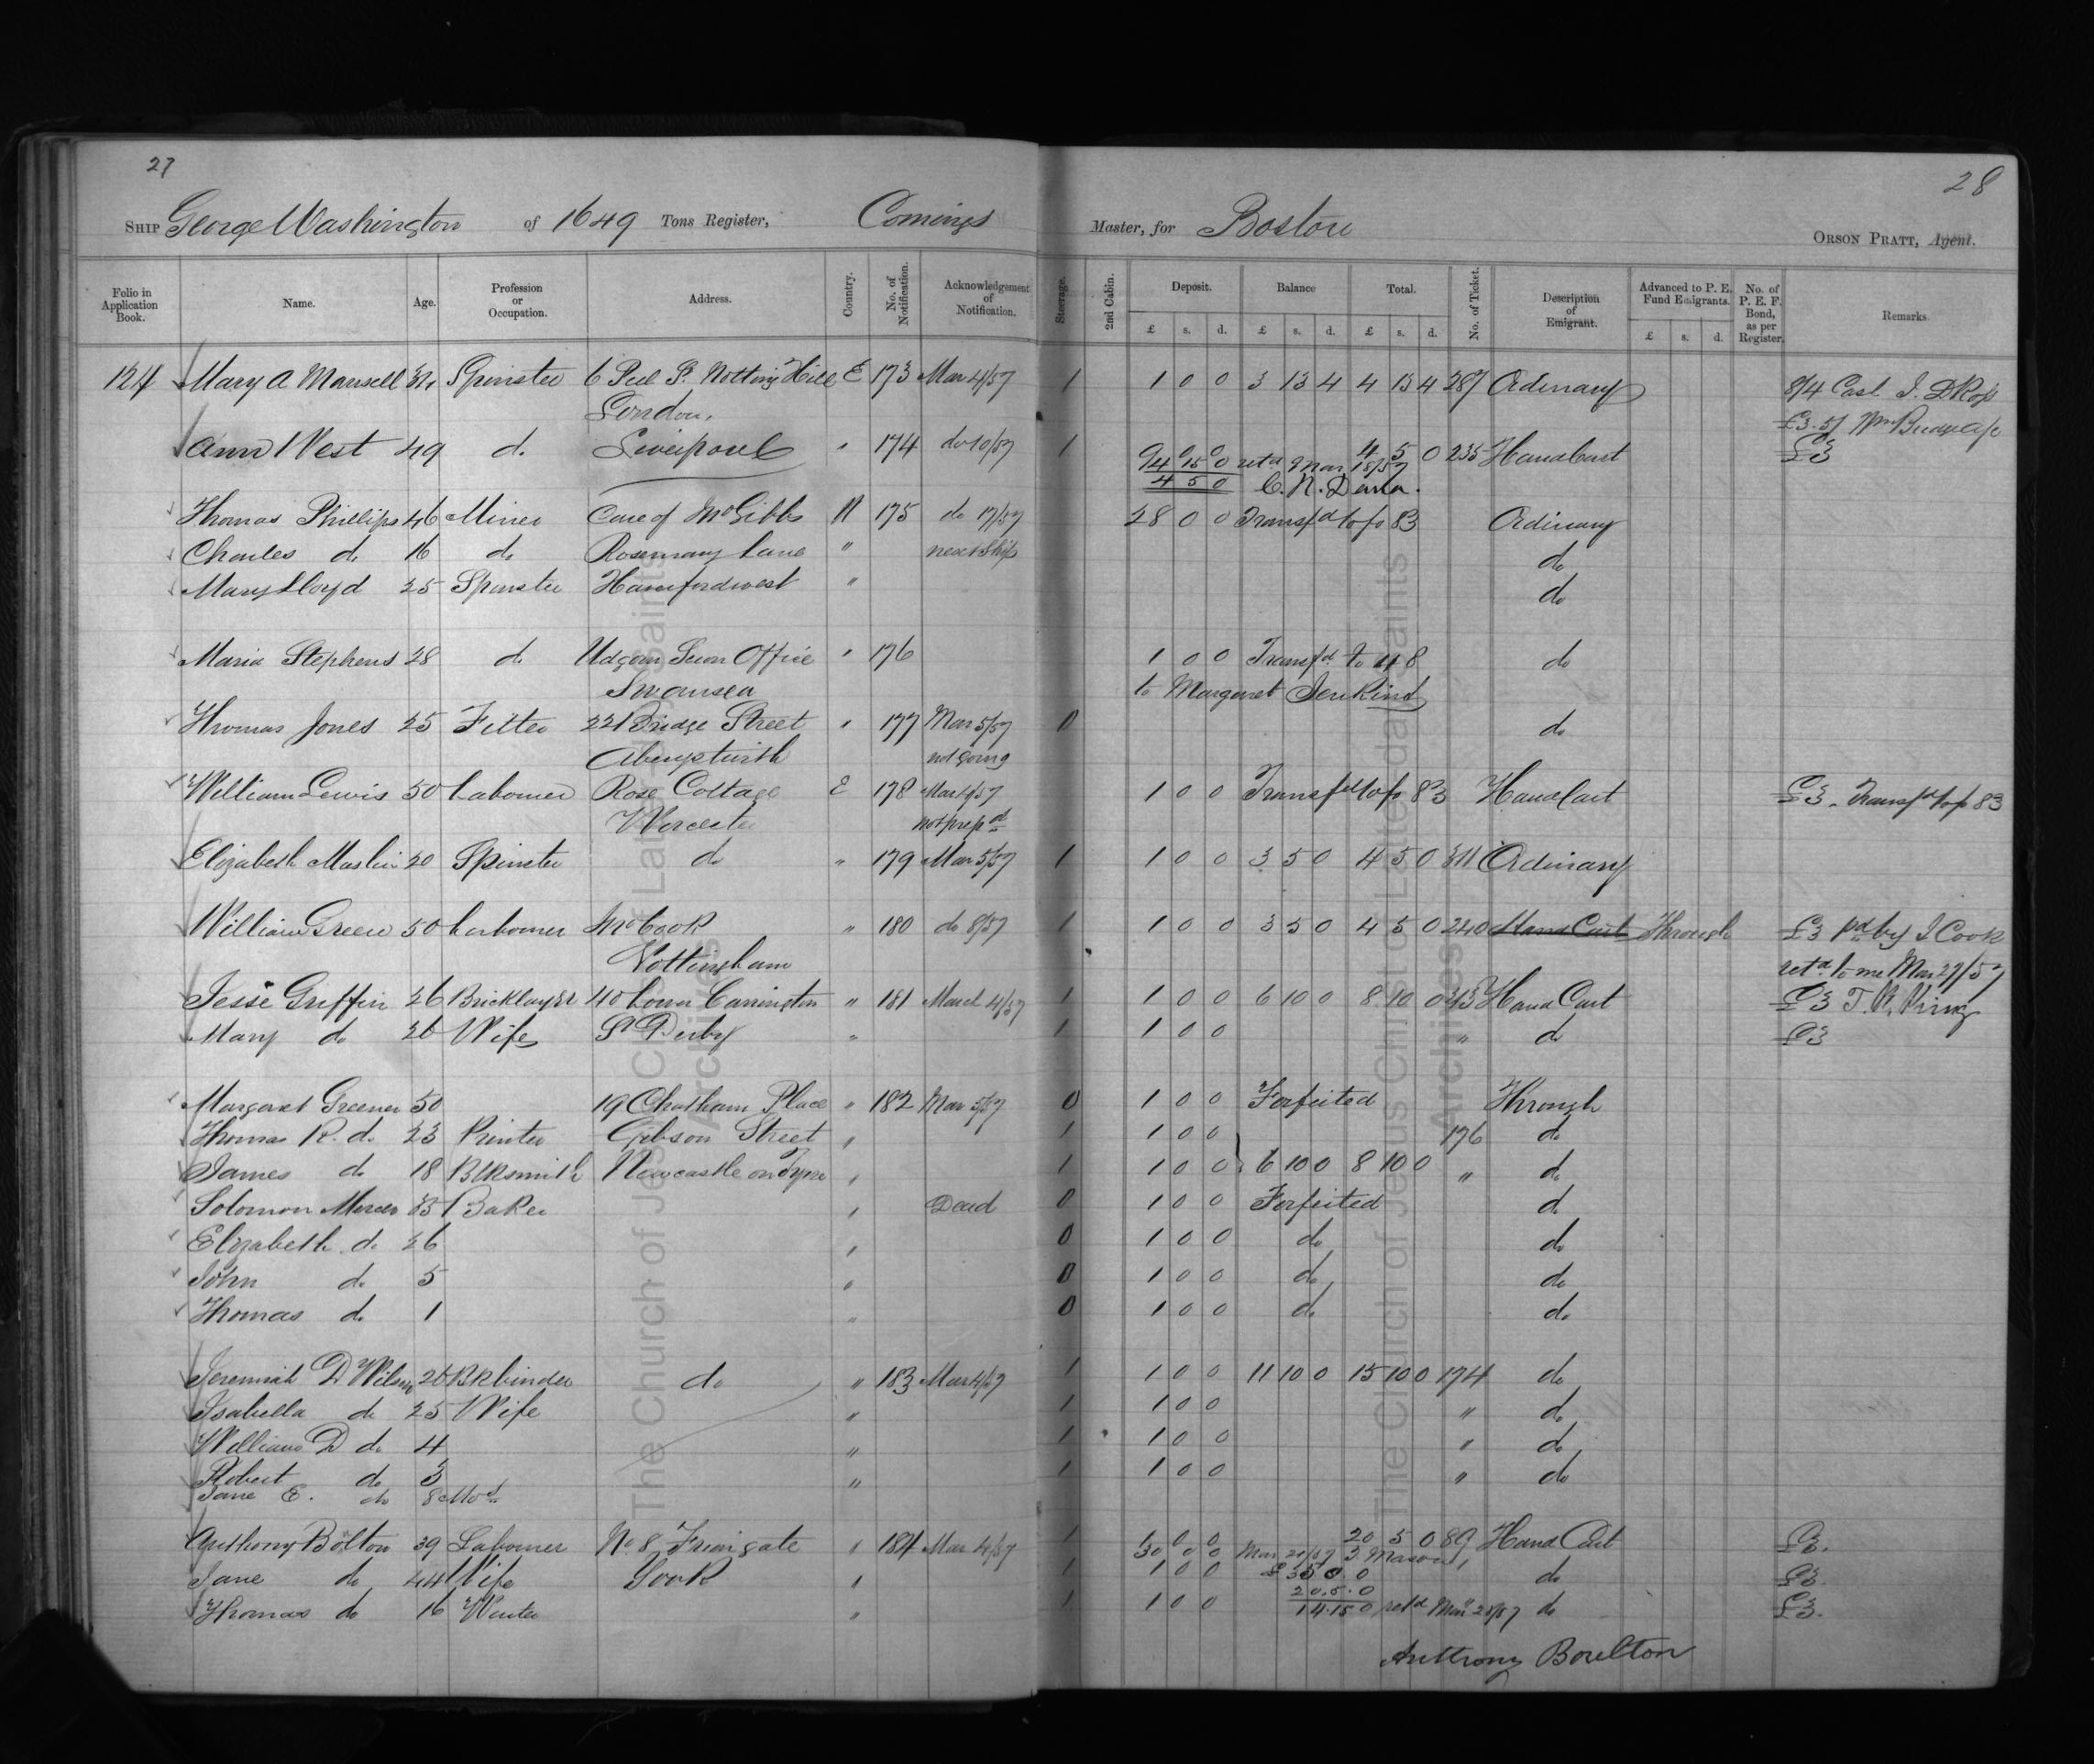 27
28
SHIP George Washington of 1649 Tons Register, Comings Master, for Boston ORSON PRATT, Agent.
Folio in Application Book. Name. Age. Profession or Occupation. Address. Country. No. of Notification. Acknowledgement of Notification. Steerage. 2nd Cabin. Deposit. Balance Total. No. of Ticket. Description of Emigrant. Advanced to P. E. Fund Emigrants. No. of P. E. F. Bond, as per Register. Remarks.
£ s. d. £ s. d. £ s. d. £ s. d.
124 Mary A Mansell Spinster 6 Peel St. Notting Hill E 173 Mar 4/57 1 1 0 0 3 13 4 4 13 4 287 Ordinary 8/4
London.
Ann West 49 d. Liverpool " 174 do 10/57 1 4 5 0 235 Hand Cart £3
9 4 15 0 retd Mar 18/57
4 5 0
Thomas Phillips 46 Miner Care of Mr Gibbs W 175 do 17/57 28 0 0 Transfd to fo 83 Ordinary
Charles do 16 do Rosemary Lane " next Ship do
Mary Lloyd 25 Spinster Haverfordwest " do
Maria Stephens 28 d. Udgorn Seion Office " 176 1 0 0 Transfd to 48 do
Swansea to Margaret Jenkins
Thomas Jones 25 Fitter 22 Bridge Street " 177 Mar 5/57 0 do
Aberystwith not going
William Lewis 50 Labourer Rose Cottage E 178 Mar 4/57 1 0 0 Transfd to fo 83 Hand Cart £3. Transfd to fo 83
Worcester not prepd
Elizabeth Maslin 20 Spinster do " 179 Mar 5/57 1 1 0 0 3 5 0 4 5 0 311 Ordinary
William Green 50 Labourer Mr Cook " 180 do 8/57 1 1 0 0 3 5 0 4 5 0 240 Hand Cart Through £3 pd by J Cook
Nottingham retd to me Mar 27/57
Jesse Griffin 26 Bricklayer 40 Lower Carrington " 181 March 4/57 1 1 0 0 6 10 0 8 10 0 313 Hand Cart £3
Mary do 26 Wife St Derby " 1 1 0 0 " do £3
Margaret Greener 50 19 Chatham Place " 182 Mar 5/57 0 1 0 0 Forfeited Through
Thomas R. d. 23 Printer Gibson Street " 1 1 0 0 176 d.
James do 18 Blksmith Newcastle on Tyne " 1 1 0 0 6 10 0 8 10 0 " d.
Solomon Mercer Baker " Dead 0 1 0 0 Forfeited d.
Elizabeth d. 26 " 0 1 0 0 do do
John d. 5 " 0 1 0 0 do do
Thomas do 1 " 0 1 0 0 do do
Jeremiah D Wilson 26 Bkbinder do " 183 Mar 4/57 1 1 0 0 11 10 0 15 10 0 174 do
Isabella do 25 Wife " 1 1 0 0 " do
William D do 4 " 1 1 0 0 " do
Robert do 3 " 1 1 0 0 " do
Jane E. do 8 Mos
Anthony Bolton 39 Labourer No 8 Friargate " 184 Mar 4/57 1 1 0 0 20 5 0 89 Hand Cart £3.
30 0 0 Mar 20/57 J. Mason
Jane do 44 Wife Goole " 1 1 0 0 £ 35 0 0 do £3.
20.5.0
Thomas do 16 " 1 1 0 0 14.15 0 retd Mar 28/57 do £3.
Anthony Boulton
The Church of Jesus Christ of Latter-day Saints
Archives
The Church of Jesus Christ of Latter-day Saints
Archives